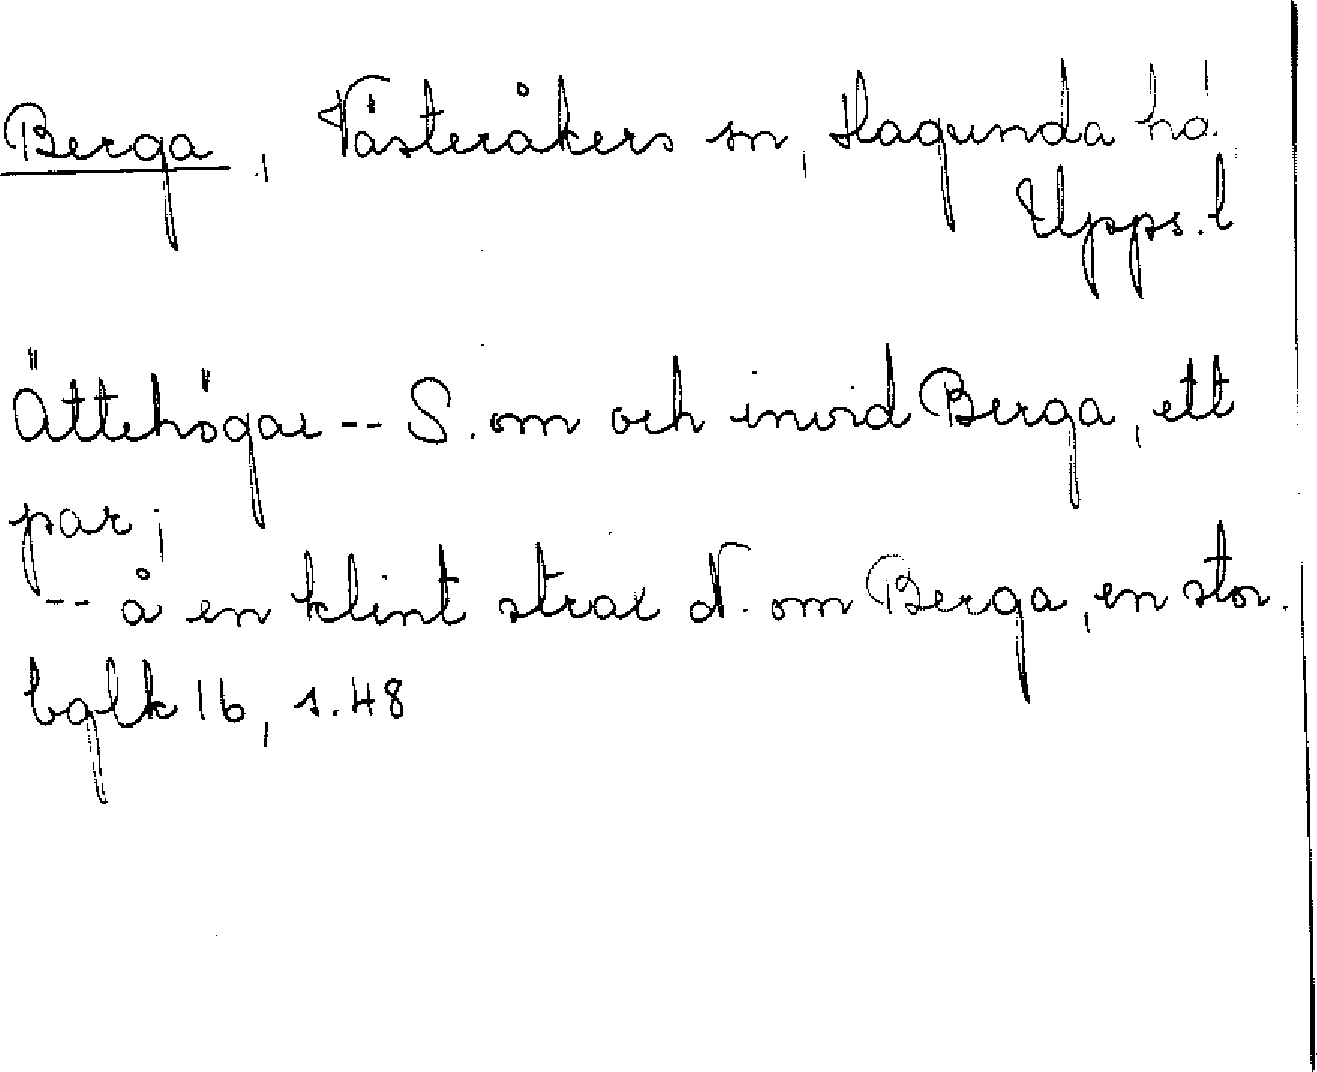 Berga, Västeråkers sn, Hagunda hd.
Upps. l
Ättehögar -- S. om och invid Berga, ett
par;
-- å en klint strax N. om Berga, en stor.
bglk 16, s. 48